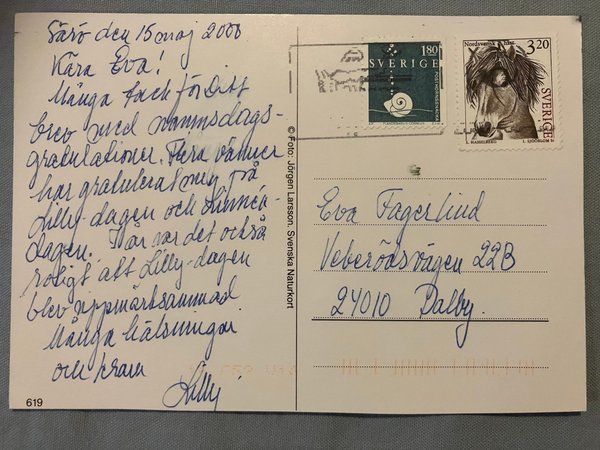 Särö den 15 maj 2000
Kära Eva!
Många tack för Ditt
brev med namnsdags-
gratulationer. Flera vänner
har gratulerat mig på
Lilly-dagen och Linnéa-
dagen. I år var det också
roligt att Lilly-dagen
blev uppmärksammad.
Många hälsningar
och kram
Lilly
619
© Foto: Jörgen Larsson. Svenska Naturkort
1.80
SVERIGE
Nordsvensk
3.20
SVERIGE
Eva Fagerlind
Veberödsvägen 22B
24010 Dalby.